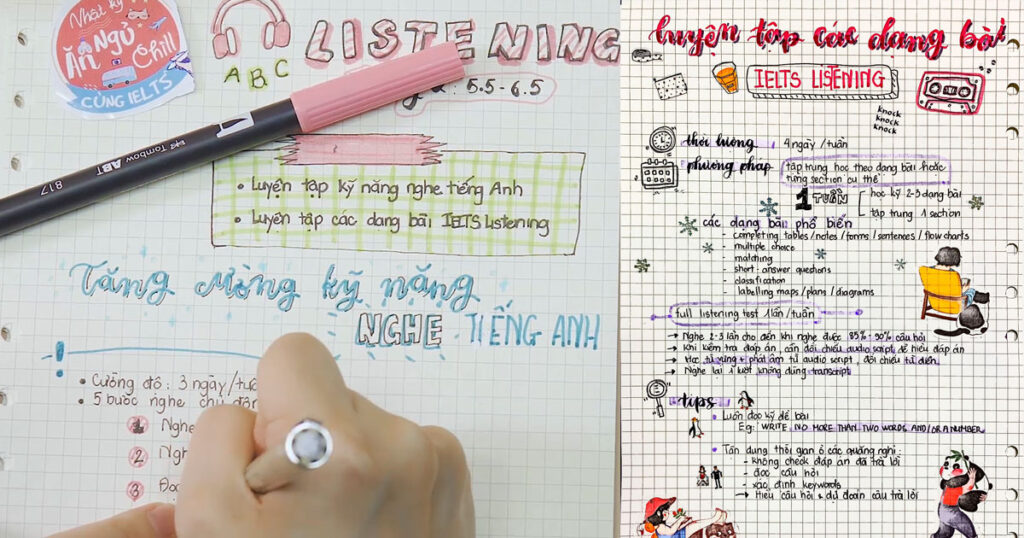 Nhật ký
Ăn Ngủ
Chill
CÙNG IELTS
ABC
LISTENING
: 5.5 - 6.5
817
Tombow
ABT
• Luyện tập kỹ năng nghe tiếng Anh
• Luyện tập các dạng bài IELTS Listening
Tăng cường kỹ năng
NGHE TIẾNG ANH
• Cường độ : 3 ngày/tuầ
• 5 bước nghe chủ độn
1 Nghe
2 Ngh
3 Đọc
luyện tập các dạng bài
IELTS LISTENING
knock
knock
knock
thời lượng 4 ngày / tuần
phương pháp tập trung học theo dạng bài hoặc
từng section cụ thể
1 TUẦN
học kỹ 2-3 dạng bài
tập trung 1 section
các dạng bài phổ biến
- completing tables / notes / forms / sentences / flow charts
- multiple choice
- matching
- short-answer questions
- classification
- labelling maps / plans / diagrams
full listening test 1 lần / tuần
→ Nghe 2-3 lần cho đến khi nghe được 85% - 90% câu hỏi
→ Khi kiểm tra đáp án, cần đối chiếu audio script để hiểu đáp án
→ Học từ vựng + phát âm từ audio script, đối chiếu từ điển
→ Nghe lại 1 lượt không dùng transcript
tips
• Luôn đọc kỹ đề bài
Eg: WRITE NO MORE THAN TWO WORDS AND/OR A NUMBER
• Tận dụng thời gian ở các quãng nghỉ :
- không check đáp án đã trả lời
- đọc câu hỏi
- xác định keywords
→ Hiểu câu hỏi & dự đoán câu trả lời